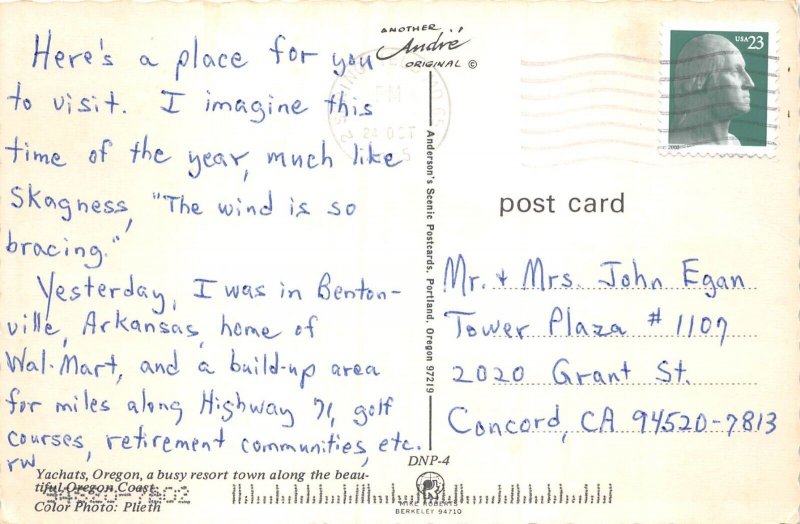 Here's a place for you
to visit. I imagine this
time of the year, much like
Skagness, "The wind is so
bracing."
Yesterday, I was in Benton-
ville, Arkansas, home of
Wal-Mart, and a build-up area
for miles along Highway 71, golf
courses, retirement communities, etc.
rw
Yachats, Oregon, a busy resort town along the beau-
tiful Oregon Coast.
Color Photo: Plieth
ANOTHER
André
ORIGINAL ©
PM
24 OCT
Anderson's Scenic Postcards, Portland, Oregon 97219
DNP-4
MIKE ROBERTS
BERKELEY 94710
USA 23
2000
post card
Mr. + Mrs. John Egan
Tower Plaza # 1107
2020 Grant St.
Concord, CA 94520-7813